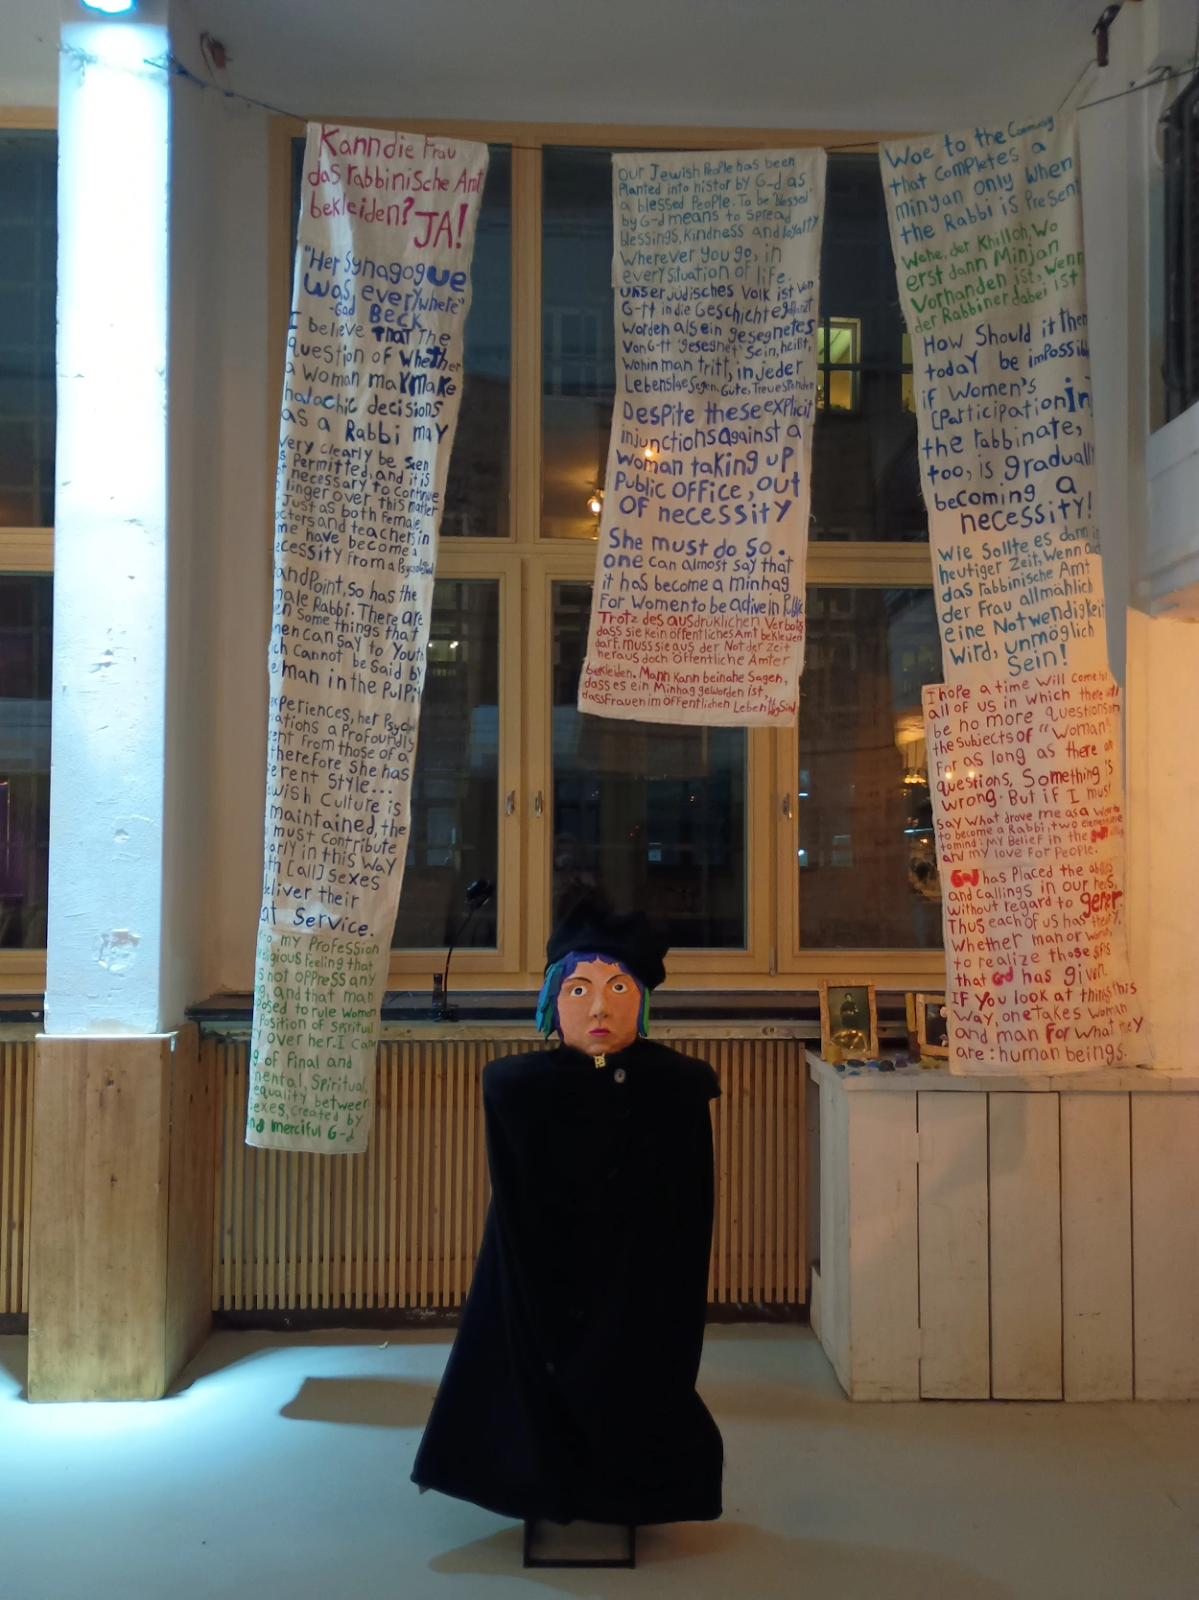 Kann die Frau
das rabbinische Amt
bekleiden? JA!
"Her Synagogue
was everywhere"
-Gad Beck
I believe THAT The
question of whether
a woman may make
halachic decisions
as a Rabbi may
very clearly be seen
Permitted, and it is
necessary to continue
linger over this matter
Just as both Female
and teachers in
have become a
From a
standPoint, so has the
Rabbi. There are
some things that
can say to Youth
cannot be Said by
man in the PulPit
her Psych
a Profoundly
From those of a
therefore She has
Style...
Culture is
maintained, the
must contribute
in this way
[all] sexes
deliver their
Service.
my Profession
Feeling that
not oPPress any
and that man
to rule women
Position of Spiritual
over her. I can
of Final and
Spiritual,
equality between
Created by
and merciful G-d
our Jewish PeoPle has been
Planted into histor by G-d as
a blessed PeoPle. To be 'blessed'
by G-d means to SPread
blessings, Kindness and loyalty
Wherever you go, in
every situation of life.
unser jüdisches Volk ist von
G-tt in die Geschichte gePflanzt
worden als ein gesegnetes
Von G-tt 'gesegnet' Sein, heißt,
wohin man tritt, in jeder
Lebenslge Segen, Güte, Treue sPenden
Despite these explicit
injunctions against a
woman taking up
Public OFFice, out
OF necessity
She must do so.
one can almost say that
it has become a minhag
For Women to be active in Public
Trotz des ausdrüklichen Verbots
dass sie kein öffentliches Amt bekleiden
darf, muss sie aus der Not der Zeit
heraus doch öffentliche Ämter
bekleiden. Mann Kann beinahe Sagen,
dass es ein Minhag geworden ist,
dass Frauen im öffentlichen Leben Sind
Woe to the Community
that completes a
minyan only when
the Rabbi is Present
Wehe, der Khilloh, wo
erst dann Minjan
Vorhanden ist, wenn
der Rabbiner dabei ist
How Should it then
today be impossible
if Women's
[ParticipationIn]
the rabbinate,
too, is gradually
becoming a
necessity!
Wie Sollte es dann in
heutiger Zeit, Wenn auch
das rabbinische Amt
der Frau allmählich
eine Notwendigkeit
wird, unmöglich
Sein!
I hope a time will come for
all of us in which there will
be no more questions on
the Subjects of "Woman":
For as long as there are
questions, Something is
wrong. But if I must
Say what drove me as a woman
to become a Rabbi, two
to mind: my belief in the
and my love For People.
God has Placed the
and Callings in our
without regard to
Thus each of us has
Whether man or woman,
to realize those giFts
that God has given.
IF You look at things this
way, one takes Woman
and man For what they
are: human beings.